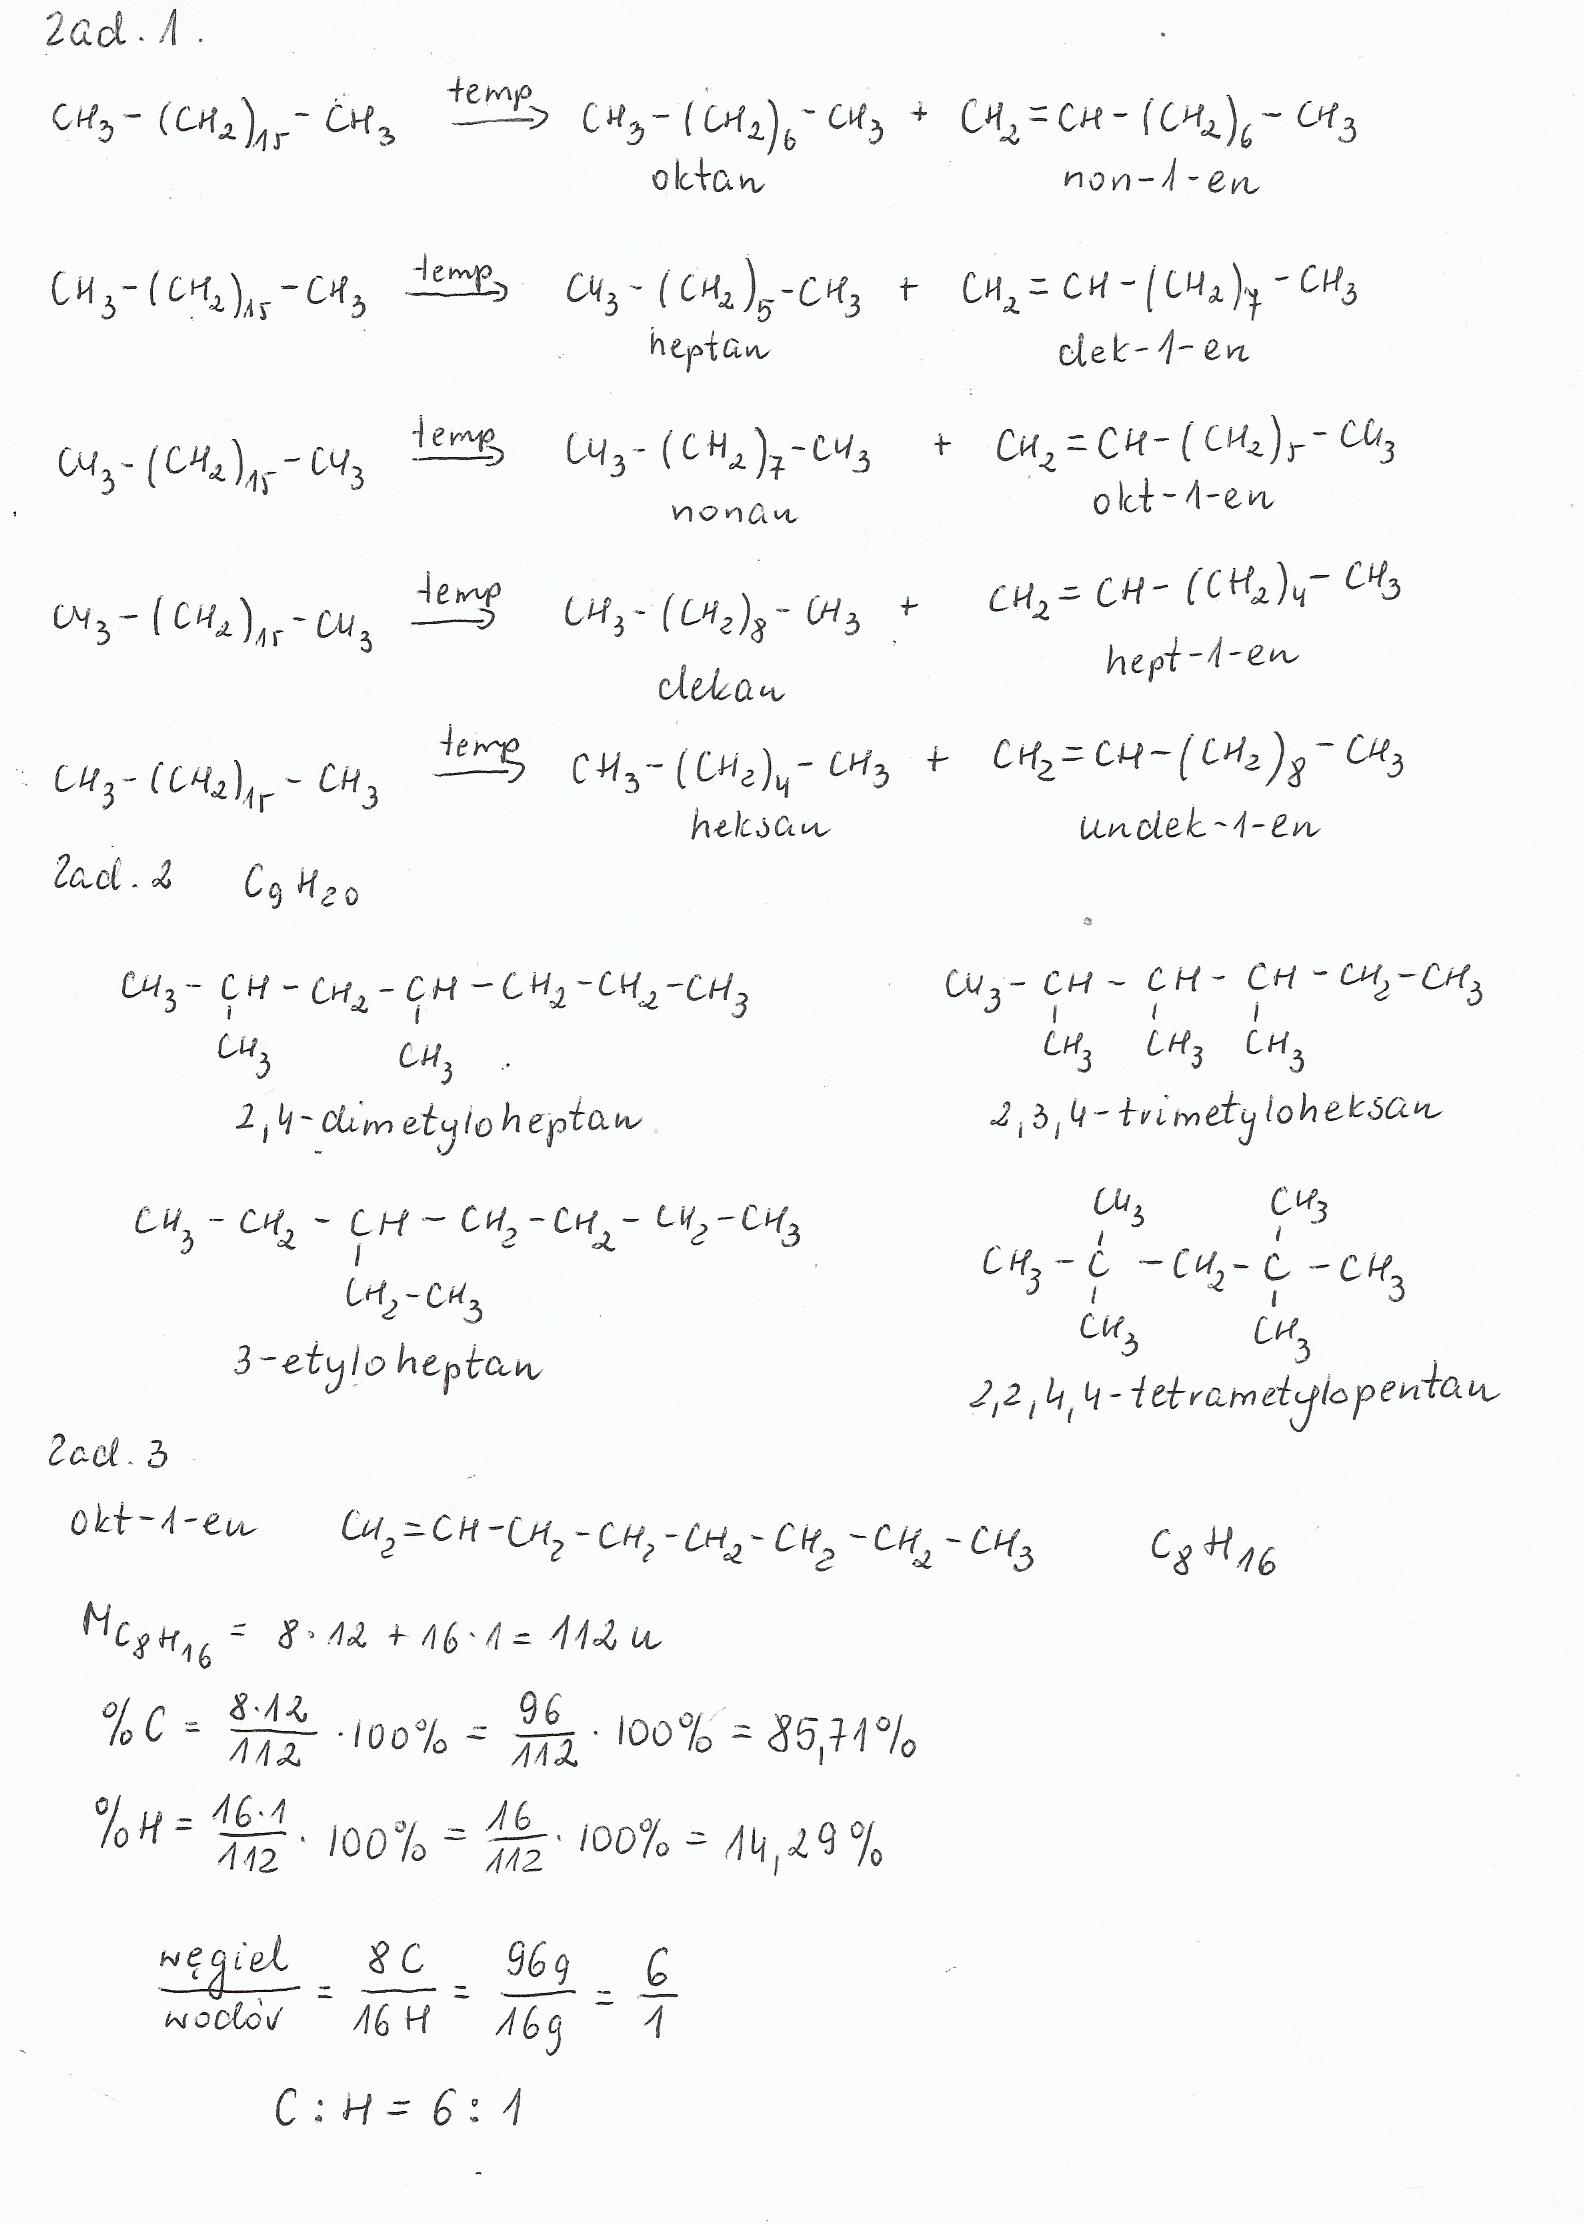 Zad. 1.
CH3-(CH2)15-CH3 temp→ CH3-(CH2)6-CH3 + CH2=CH-(CH2)6-CH3
oktan non-1-en
CH3-(CH2)15-CH3 temp→ CH3-(CH2)5-CH3 + CH2=CH-(CH2)7-CH3
heptan dek-1-en
CH3-(CH2)15-CH3 temp→ CH3-(CH2)7-CH3 + CH2=CH-(CH2)5-CH3
nonan okt-1-en
CH3-(CH2)15-CH3 temp→ CH3-(CH2)8-CH3 + CH2=CH-(CH2)4-CH3
dekan hept-1-en
CH3-(CH2)15-CH3 temp→ CH3-(CH2)4-CH3 + CH2=CH-(CH2)8-CH3
heksan undek-1-en
Zad. 2 C9H20
CH3-CH-CH2-CH-CH2-CH2-CH3 CH3-CH-CH-CH-CH2-CH3
CH3 CH3 CH3 CH3 CH3
2,4-dimetyloheptan 2,3,4-trimetyloheksan
CH3 CH3
CH3-CH2-CH-CH2-CH2-CH2-CH3 CH3-C-CH2-C-CH3
CH2-CH3 CH3 CH3
3-etyloheptan 2,2,4,4-tetrametylopentan
Zad. 3
okt-1-en CH2=CH-CH2-CH2-CH2-CH2-CH2-CH3 C8H16
MC8H16 = 8·12 + 16·1 = 112 u
%C = 8·12/112 · 100% = 96/112 · 100% = 85,71%
%H = 16·1/112 · 100% = 16/112 · 100% = 14,29%
węgiel/wodór = 8C/16H = 96g/16g = 6/1
C : H = 6 : 1